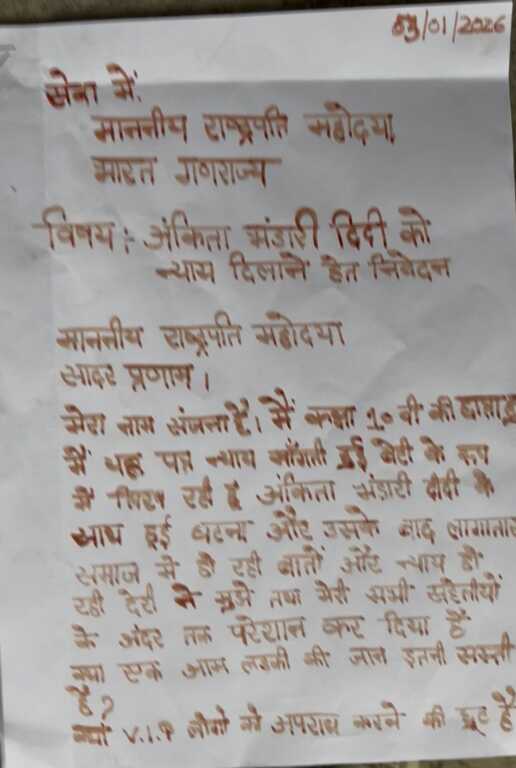 03/01/2026
सेवा में.
माननीय राष्ट्रपति महोदया,
भारत गणराज्य
विषय : अंकिता भंडारी दिदी को
न्याय दिलाने हेत निवेदन
माननीय राष्ट्रपति महोदया
सादर प्रणाम ।
मेरा नाम संजना है। मैं कक्षा 10 वी की छात्रा हूं
में यह पत्र न्याय माँगती हुई बेटी के रूप
में लिख रही हूं अंकिता भंडारी दीदी के
साथ हुई घटना और उसके बाद लागातार
समाज में हो रही बातों और न्याय हो
रही देरी ने मुझे तथा मेरी सभी सहेलीयों
के अंदर तक परेशान कर दिया है
क्या एक आम लडकी की जान इतनी सस्ती
है?
क्यों V.I.P लोगो को अपराध करने की छूट है